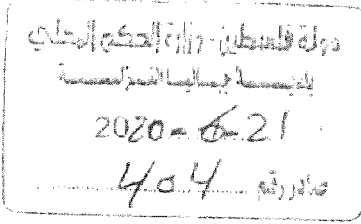 دولة فلسطين - وزارة الحكم المحلي
بلديـــة
2020-6-21
صادر رقم 404